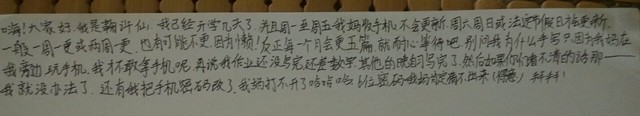 嗨！大家好，我是韩汗仙，我已经开学几天了，并且周一至周五我妈收手机，不会更新，周六周日或法定节假日才会更新，
一般一周一更或两周一更，也有可能不更，因为懒！反正每个月会更五篇，就耐心等待吧，别问我为什么手写？因为我妈在
我旁边玩手机，我才不敢拿手机呢，再说我作业还没写完，还差数学，其他的晚自习写完了，然后如果你们看不清的话那——
我就没办法了，还有我把手机密码改了，我妈打不开了哈哈哈，6位密码我妈绝猜不出来（得意）拜拜！